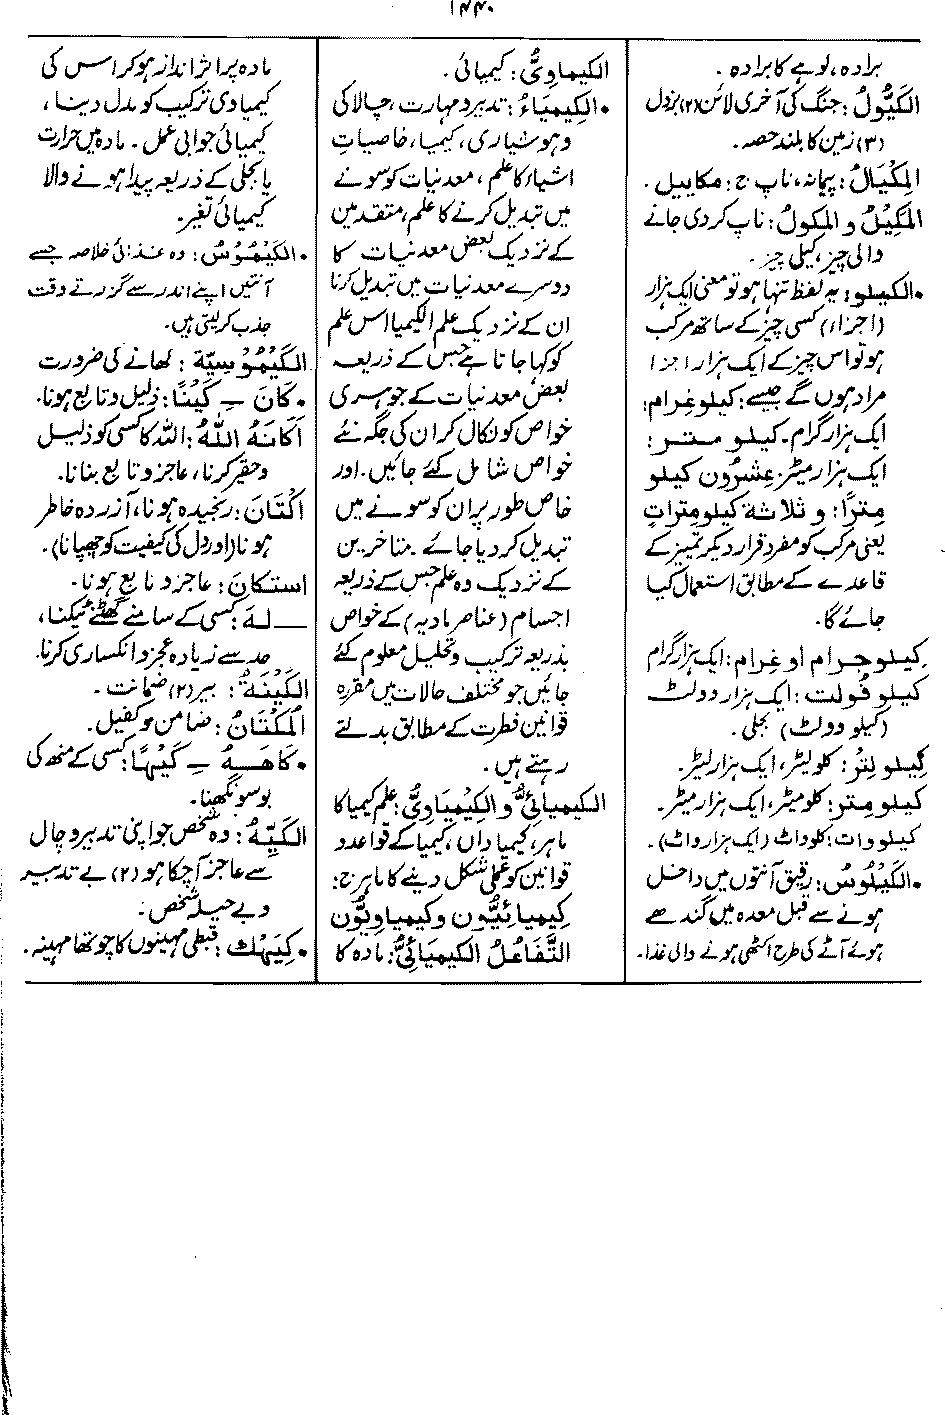 ۱۴۴۰
برادہ، لوہے کا برادہ۔
الكَيُّولُ: جنگ کی آخری لائن (۲) بزدل
(۳) زمین کا بلند حصہ۔
المِكْيَالُ: پیمانہ، ناپ ج: مكاييل۔
المَكِيْلُ و المكولُ: ناپ کر دی جانے
والی چیز، کیلی چیز۔
• الكيلو: یہ لفظ تنہا ہو تو معنی ایک ہزار
(اجزاء) کسی چیز کے ساتھ مرکب
ہو تو اس چیز کے ایک ہزار اجزا
مراد ہوں گے جیسے: كيلو غِرام:
ایک ہزار گرام۔ كيلو متر:
ایک ہزار میٹر۔ عِشرُون كيلو
مِترًا: و ثلاثة كيلو مِتراتٍ
یعنی مرکب کو مفرد قرار دیکر تمییز کے
قاعدے کے مطابق استعمال کیا
جائے گا۔
كِيلو جرام او غِرام: ایک ہزار گرام
كيلو فُولت: ایک ہزار وولٹ
(کیلو وولٹ) بجلی۔
كِيلو لِتْر: کلو لیٹر، ایک ہزار لیٹر۔
كيلو متر: کلو میٹر، ایک ہزار میٹر۔
كيلو وات: کلو واٹ (ایک ہزار واٹ)۔
• الكَيْلُوْسُ: رقیق آنتوں میں داخل
ہونے سے قبل معدہ میں گندھے
ہوئے آٹے کی طرح اکٹھی ہونے والی غذا۔
الكيماوِيُّ: کیمیائی۔
• الكِيمْيَاءُ: تدبیر و مہارت، چالاکی
و ہوشیاری، کیمیا، خاصیاتِ
اشیاء کا علم، معدنیات کو سونے
میں تبدیل کرنے کا علم، متقدمین
کے نزدیک بعض معدنیات کا
دوسرے معدنیات میں تبدیل کرنا
ان کے نزدیک علم الکیمیا اس علم
کو کہا جاتا ہے جس کے ذریعہ
بعض معدنیات کے جوہری
خواص کو نکال کر ان کی جگہ نئے
خواص شامل کئے جائیں۔ اور
خاص طور پر ان کو سونے میں
تبدیل کر دیا جائے۔ متاخرین
کے نزدیک وہ علم جس کے ذریعہ
اجسام (عناصر مادیہ) کے خواص
بذریعہ ترکیب و تحلیل معلوم کئے
جائیں جو مختلف حالات میں مقررہ
قوانین فطرت کے مطابق بدلتے
رہتے ہیں۔
الكيميائِيُّ و الكِيْمِيَاوِيُّ: علم کیمیا کا
ماہر، کیمیا داں، کیمیا کے قواعد و
قوانین کو عملی شکل دینے کا ماہر ج:
كِيميائِيُّون و كيمياوِيُّون
التَّفَاعُلُ الكِيمْيَائِيُّ: مادہ کا
مادہ پر اثر انداز ہو کر اس کی
کیمیاوی ترکیب کو بدل دینا،
کیمیائی جوابی عمل۔ مادہ میں حرارت
یا بجلی کے ذریعہ پیدا ہونے والا
کیمیائی تغیر۔
• الكَيْمُوْسُ: وہ غذائی خلاصہ جسے
آنتیں اپنے اندر سے گزرتے وقت
جذب کر لیتی ہیں۔
الكَيْمُوْسِيَّة: کھانے کی ضرورت
• كَانَ ـِ كَيْنًا: ذلیل و تابع ہونا۔
اَكَانَهُ اللّٰهُ: اللہ کا کسی کو ذلیل
و حقیر کرنا، عاجز و تابع بنانا۔
اكْتَانَ: رنجیدہ ہونا، آزردہ خاطر
ہونا (اور دل کی کیفیت کو چھپانا)۔
استكانَ: عاجز و تابع ہونا۔
ـــ لهٗ: کسی کے سامنے گھٹنے ٹیکنا،
حد سے زیادہ عجز و انکساری کرنا۔
الكِيْنَةُ: بیر (۲) ضمانت۔
المُكْتَانُ: ضامن و کفیل۔
• كَاهَهُ ـِ كَيْهًا: کسی کے منھ کی
بو سونگھنا۔
الكَيِّهُ: وہ شخص جو اپنی تدبیر و چال
سے عاجز آ چکا ہو (۲) بے تدبیر
و بے حیلہ شخص۔
• كِيَهْك: قبطی مہینوں کا چوتھا مہینہ۔